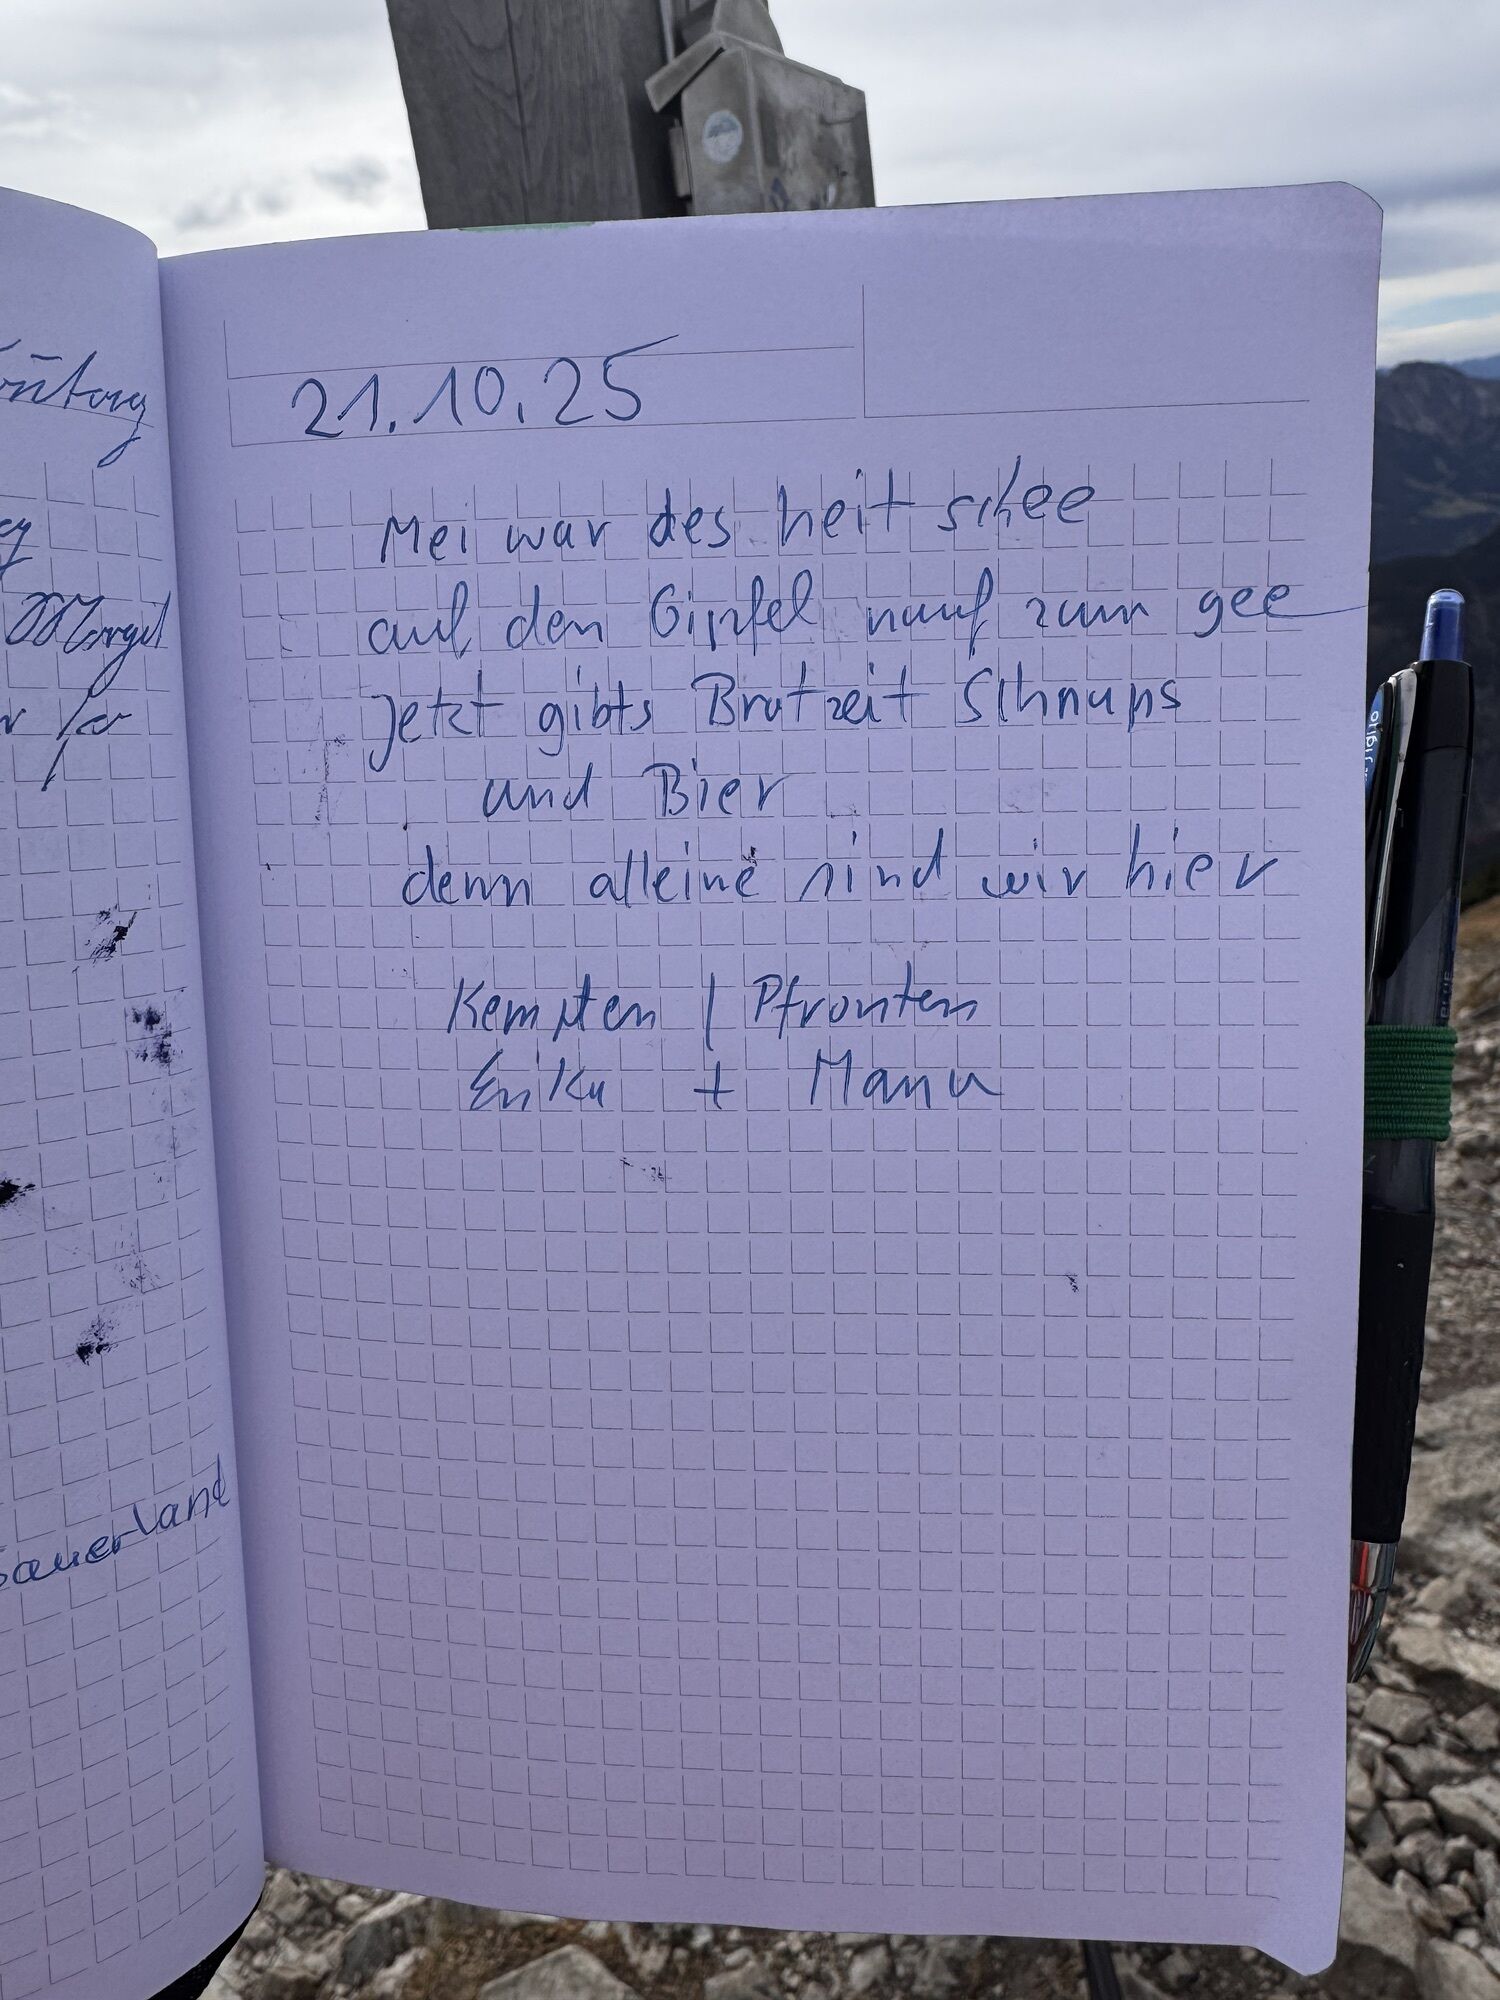 Sauerland
21.10.25
Mei war des heit schee
auf den Gipfel nauf zum gee
jetzt gibts Brotzeit Schnaps
und Bier
denn alleine sind wir hier
Kempten / Pfronten
Erika + Manu